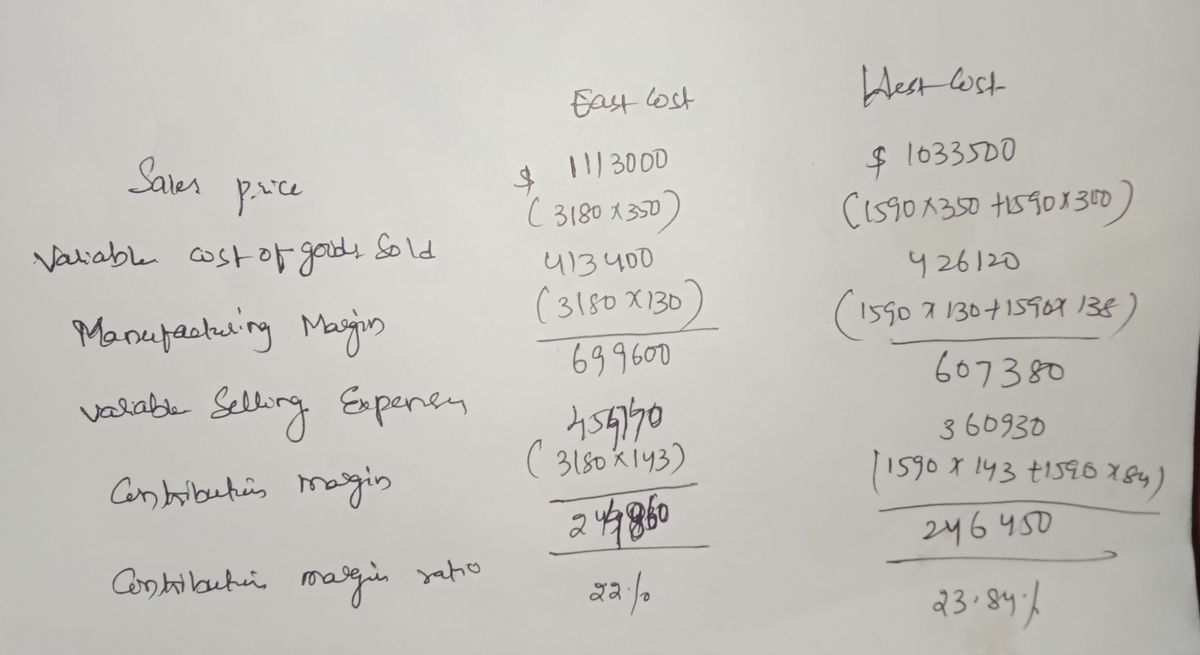 East Cost West Cost
Sales price $ 1113000 $ 1033500
(3180 x 350) (1590 x 350 + 1590 x 300)
Variable cost of goods Sold 413400 426120
(3180 x 130) (1590 x 130 + 1590 x 138)
Manufacturing Margin
699600 607380
Variable Selling Expenses 360930
(3180 x 143) (1590 x 143 + 1590 x 84)
Contribution margin
246450
Contribution margin ratio 22% 23.84%